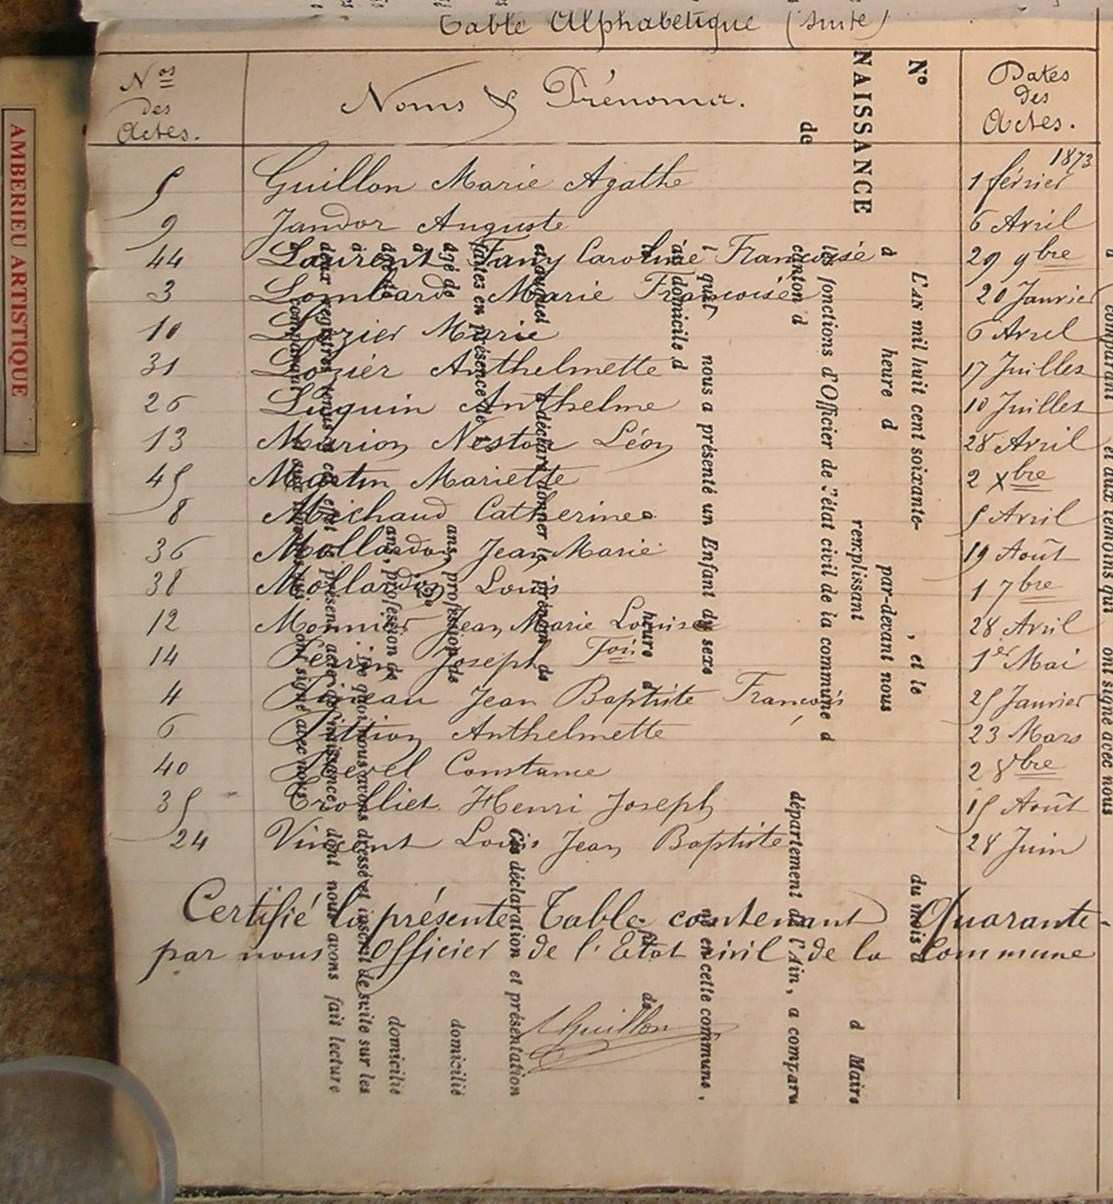 Table Alphabétique (suite)
Nos des Actes. Noms & Prénoms. Dates des Actes.
1873
5 Guillon Marie Agathe 1 février
9 Jandor Auguste 6 Avril
44 Laurent Fany Caroline Françoise 29 9bre
3 Lombard Marie Françoise 20 Janvier
10 Lozier Marie 6 Avril
31 Lozier Anthelmette 17 Juilles
26 Luquin Anthelme 10 Juilles
13 Marion Nestor Léon 28 Avril
45 Martin Mariette 2 Xbre
8 Michaud Catherine 5 Avril
36 Mollardon Jean Marie 19 Août
38 Mollardon Louis 1 7bre
12 Monnier Jean Marie Louis 28 Avril
14 Perrin Joseph 1er Mai
4 Jean Baptiste François 25 Janvier
6 Pition Anthelmette 23 Mars
40 Constance 2 8bre
35 Trolliet Henri Joseph 15 Août
24 Vincent Louis Jean Baptiste 28 Juin
Certifié la présente Table contenant Quarante-
par nous Officier de l'Etat civil de la Commune
Guillon
AMBERIEU ARTISTIQUE
No
NAISSANCE
de
L'AN mil huit cent soixante- , et le du mois d
à heure d par-devant nous
remplissant d Maire
les fonctions d'Officier de l'état civil de la commune d
canton d département de l'Ain, a comparu
l quel nous a présenté un Enfant du sexe né en cette commune,
au domicile d
heure d de
et auquel a déclaré donner le prénom de
Ces déclaration et présentation
faites en présence de
âgé de ans, profession de domicilié
à
âgé de ans, profession de domicilié
à ; de quoi nous avons dressé et inscrit de suite sur les
deux registres tenus à cet effet le présent acte de naissance, dont nous avons fait lecture
comparant ont signé avec nous
comparant et aux témoins qui ont signé avec nous